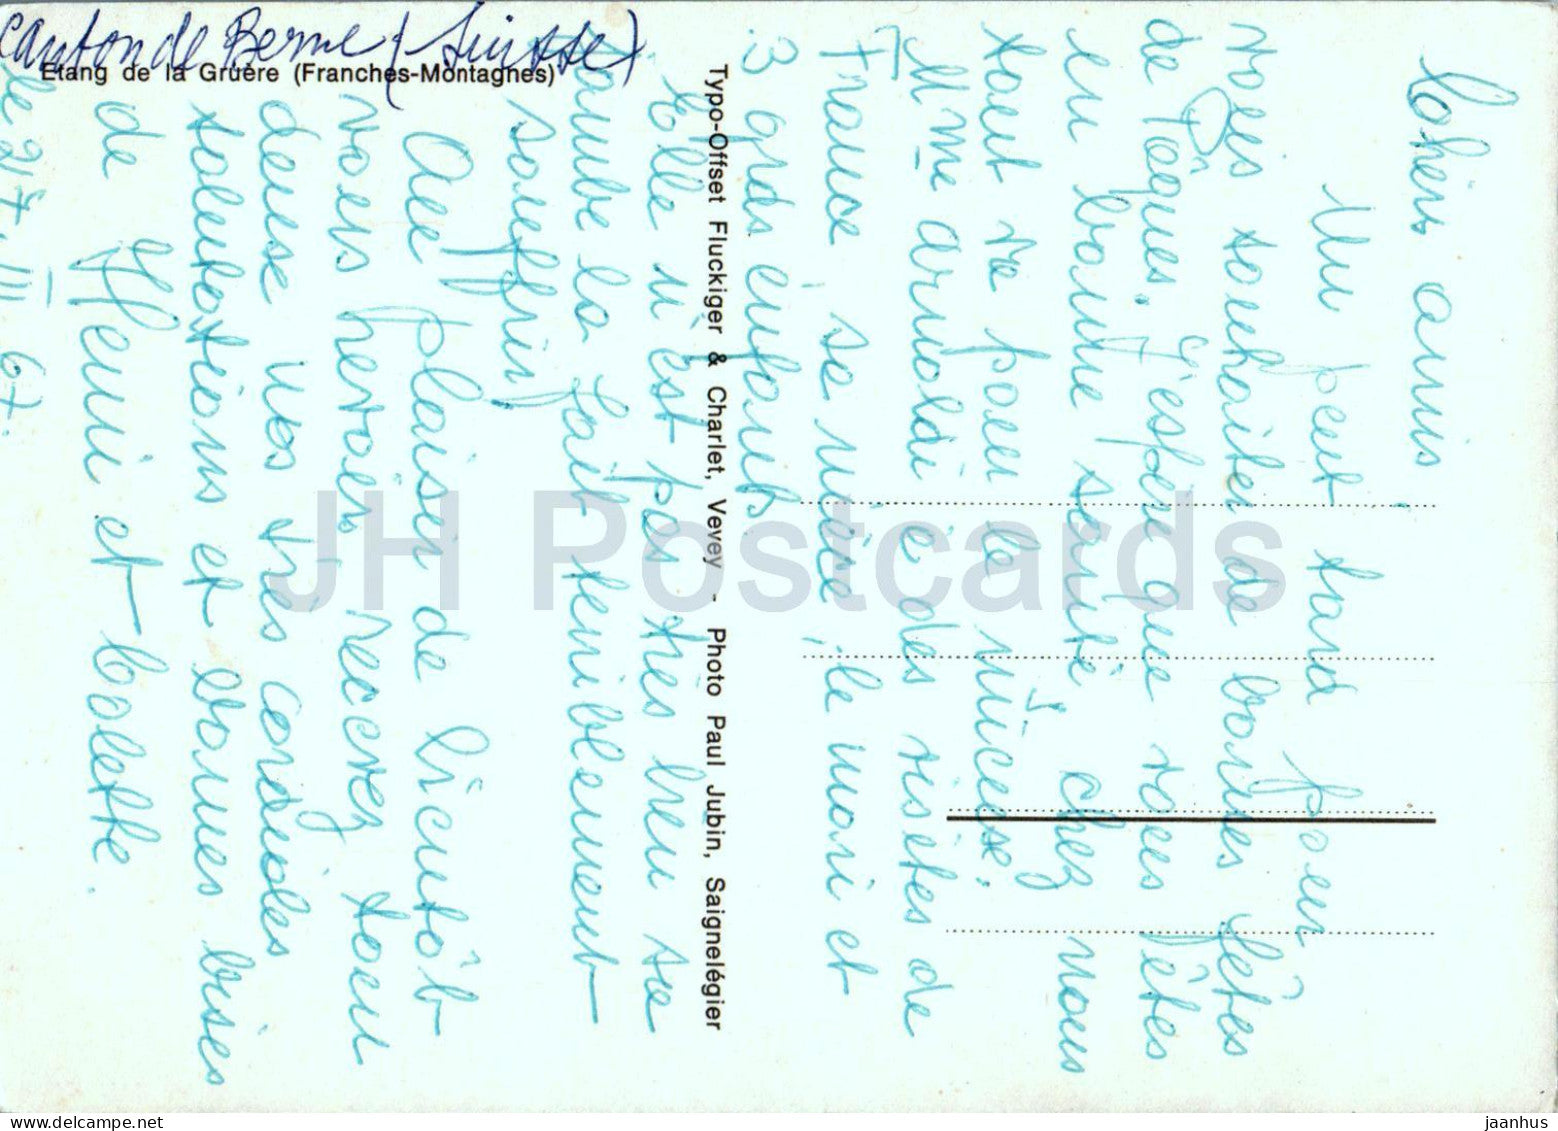 Canton de Berne (Suisse)
Etang de la Gruère (Franches-Montagnes)
Typo-Offset Fluckiger & Charlet, Vevey - Photo Paul Jubin, Saignelégier
Chers amis
Un peut tard pour
vous souhaiter de bonnes fêtes
de Pâques. J'espère que vous êtes
en bonne santé, chez nous
tout va pour le mieux.
Mme Arnoldi a des visites de
France, sa nièce, le mari et
3 grds enfants.
Elle n'est pas très bien sa
jambe la fait terriblement
souffrir
Au plaisir de bientôt
vous revoir, recevez tou
deux nos très cordiales
salutations et bonnes bises
de et
le 27. III 67.
JH Postcards
jaanhus